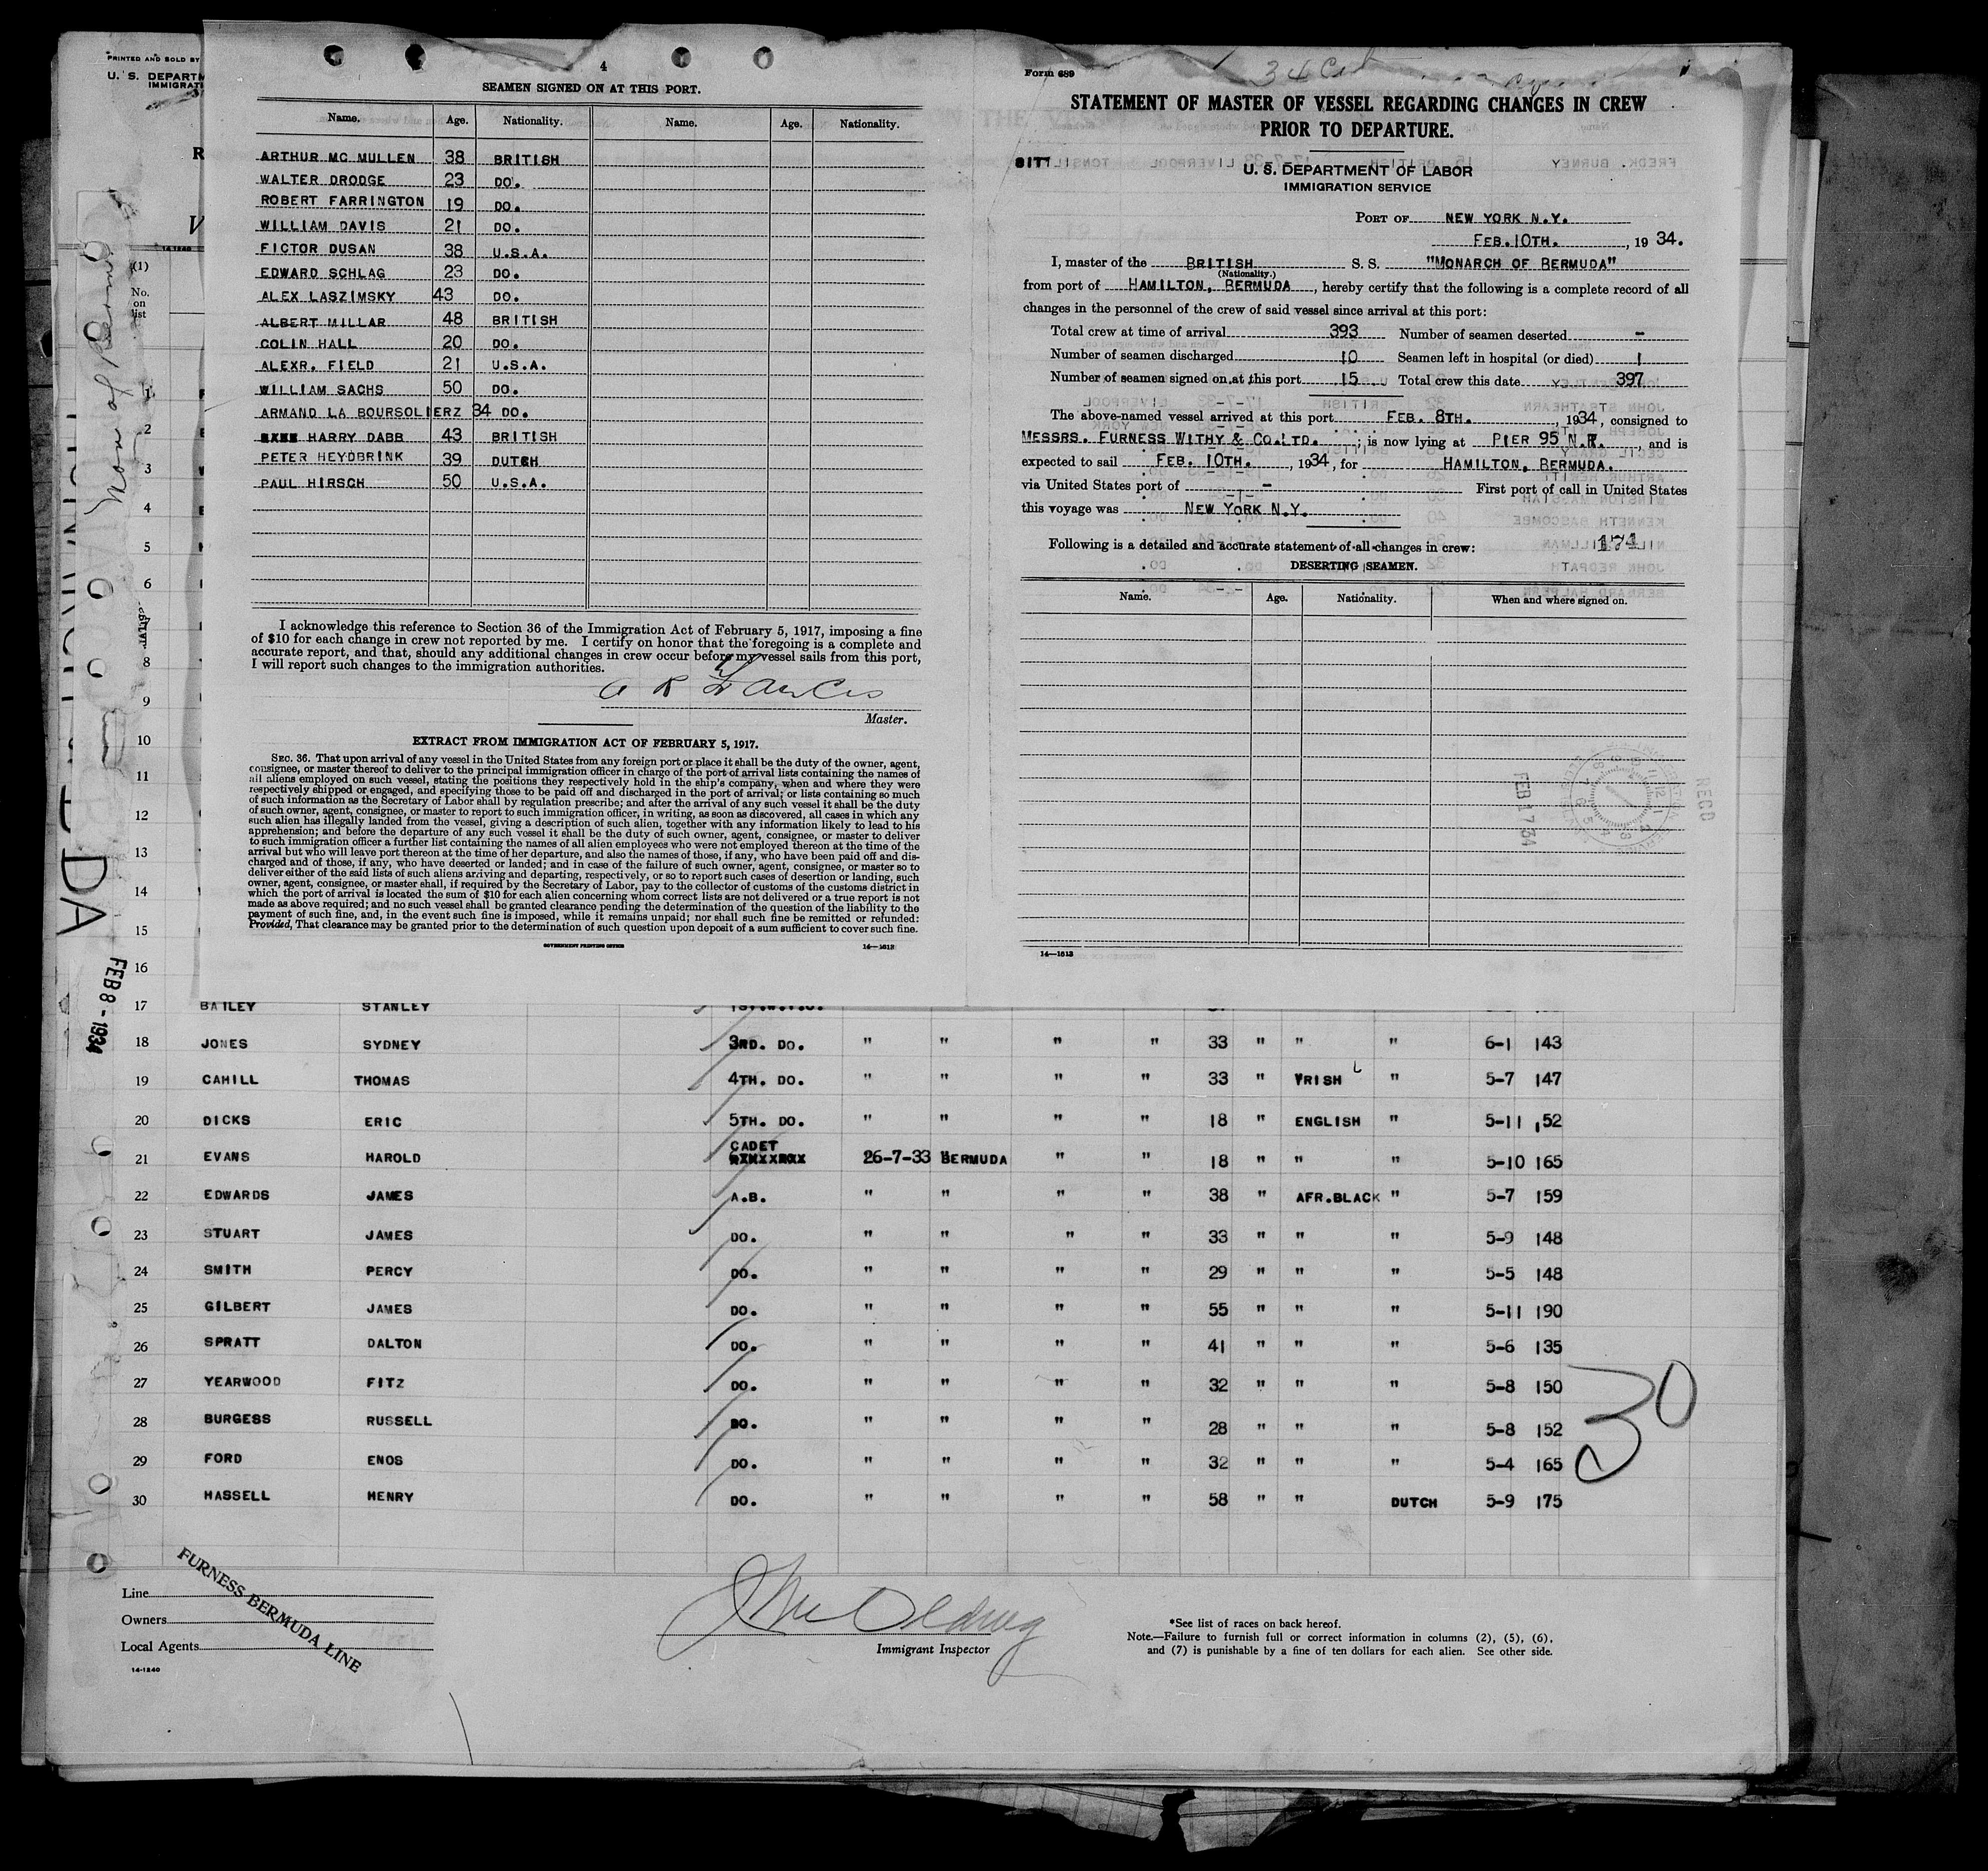 PRINTED AND SOLD BY
U. S. DEPARTM
IMMIGRATI
4
SEAMEN SIGNED ON AT THIS PORT.
Name. Age. Nationality. Name. Age. Nationality.
ARTHUR MC MULLEN 38 BRITISH
WALTER DRODGE 23 DO.
ROBERT FARRINGTON 19 DO.
WILLIAM DAVIS 21 DO.
FICTOR DUSAN 38 U.S.A.
EDWARD SCHLAG 23 DO.
ALEX LASZIMSKY 43 DO.
ALBERT MILLAR 48 BRITISH
COLIN HALL 20 DO.
ALEXR. FIELD 21 U.S.A.
WILLIAM SACHS 50 DO.
ARMAND LA BOURSOLIERZ 34 DO.
HARRY DABB 43 BRITISH
PETER HEYDBRINK 39 DUTCH
PAUL HIRSCH 50 U.S.A.
I acknowledge this reference to Section 36 of the Immigration Act of February 5, 1917, imposing a fine
of $10 for each change in crew not reported by me. I certify on honor that the foregoing is a complete and
accurate report, and that, should any additional changes in crew occur before my vessel sails from this port,
I will report such changes to the immigration authorities.
Master.
EXTRACT FROM IMMIGRATION ACT OF FEBRUARY 5, 1917.
SEC. 36. That upon arrival of any vessel in the United States from any foreign port or place it shall be the duty of the owner, agent,
consignee, or master thereof to deliver to the principal immigration officer in charge of the port of arrival lists containing the names of
all aliens employed on such vessel, stating the positions they respectively hold in the ship's company, when and where they were
respectively shipped or engaged, and specifying those to be paid off and discharged in the port of arrival; or lists containing so much
of such information as the Secretary of Labor shall by regulation prescribe; and after the arrival of any such vessel it shall be the duty
of such owner, agent, consignee, or master to report to such immigration officer, in writing, as soon as discovered, all cases in which any
such alien has illegally landed from the vessel, giving a description of such alien, together with any information likely to lead to his
apprehension; and before the departure of any such vessel it shall be the duty of such owner, agent, consignee, or master to deliver
to such immigration officer a further list containing the names of all alien employees who were not employed thereon at the time of the
arrival but who will leave port thereon at the time of her departure, and also the names of those, if any, who have been paid off and dis-
charged and of those, if any, who have deserted or landed; and in case of the failure of such owner, agent, consignee, or master so to
deliver either of the said lists of such aliens arriving and departing, respectively, or so to report such cases of desertion or landing, such
owner, agent, consignee, or master shall, if required by the Secretary of Labor, pay to the collector of customs of the customs district in
which the port of arrival is located the sum of $10 for each alien concerning whom correct lists are not delivered or a true report is not
made as above required; and no such vessel shall be granted clearance pending the determination of the question of the liability to the
payment of such fine, and, in the event such fine is imposed, while it remains unpaid; nor shall such fine be remitted or refunded:
Provided, That clearance may be granted prior to the determination of such question upon deposit of a sum sufficient to cover such fine.
GOVERNMENT PRINTING OFFICE 14—1613
Form 689
STATEMENT OF MASTER OF VESSEL REGARDING CHANGES IN CREW
PRIOR TO DEPARTURE.
U. S. DEPARTMENT OF LABOR
IMMIGRATION SERVICE
PORT OF NEW YORK N.Y.
FEB. 10TH. , 19 34.
I, master of the BRITISH S. S. "MONARCH OF BERMUDA"
(Nationality.)
from port of HAMILTON, BERMUDA , hereby certify that the following is a complete record of all
changes in the personnel of the crew of said vessel since arrival at this port:
Total crew at time of arrival 393 Number of seamen deserted -
Number of seamen discharged 10 Seamen left in hospital (or died) 1
Number of seamen signed on at this port 15 Total crew this date 397
The above-named vessel arrived at this port FEB. 8TH. , 1934, consigned to
MESSRS. FURNESS WITHY & CO. LTD. ; is now lying at PIER 95 N.R. , and is
expected to sail FEB. 10TH. , 1934, for HAMILTON, BERMUDA.
via United States port of - First port of call in United States
this voyage was NEW YORK N.Y.
Following is a detailed and accurate statement of all changes in crew: 174
DESERTING SEAMEN.
Name. Age. Nationality. When and where signed on.
FEB 17 34
RECD
14—1613
(1)
No.
on
list
1
2
3
4
5
6
8
9
10
11
12
13
14
15
16
FEB 8 - 1934
17 BAILEY STANLEY
18 JONES SYDNEY 3RD. DO. " " " " 33 " " " 6-1 143
19 CAHILL THOMAS 4TH. DO. " " " " 33 " YRISH " 5-7 147
20 DICKS ERIC 5TH. DO. " " " " 18 " ENGLISH " 5-11 152
CADET
21 EVANS HAROLD 26-7-33 BERMUDA " " 18 " " " 5-10 165
22 EDWARDS JAMES A.B. " " " " 38 " AFR.BLACK " 5-7 159
23 STUART JAMES DO. " " " " 33 " " " 5-9 148
24 SMITH PERCY DO. " " " " 29 " " " 5-5 148
25 GILBERT JAMES DO. " " " " 55 " " " 5-11 190
26 SPRATT DALTON DO. " " " " 41 " " " 5-6 135
27 YEARWOOD FITZ DO. " " " " 32 " " " 5-8 150
28 BURGESS RUSSELL DO. " " " " 28 " " " 5-8 152
29 FORD ENOS DO. " " " " 32 " " " 5-4 165
30 HASSELL HENRY DO. " " " " 58 " " DUTCH 5-9 175
30
Line
Owners
Local Agents
FURNESS BERMUDA LINE
14-1240
Immigrant Inspector
*See list of races on back hereof.
Note.—Failure to furnish full or correct information in columns (2), (5), (6),
and (7) is punishable by a fine of ten dollars for each alien. See other side.